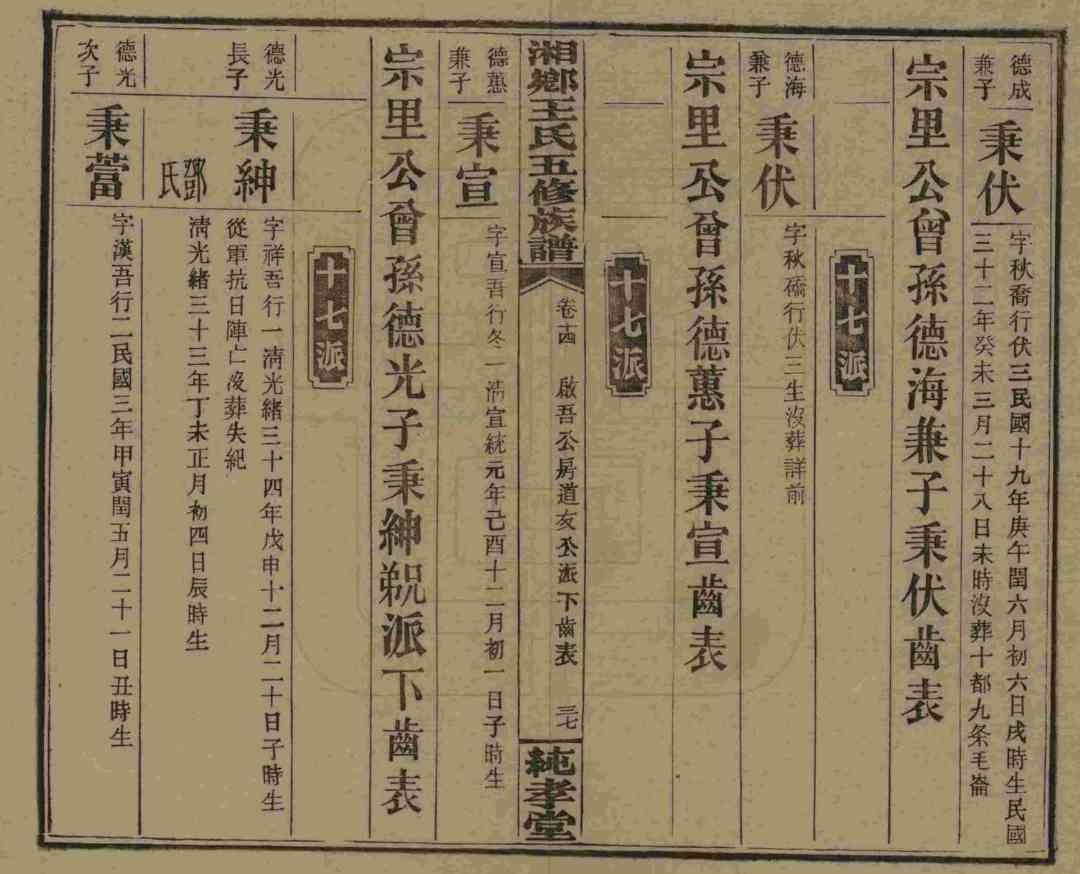 德成
兼子
秉伏
字秋喬行伏三民國十九年庚午閏六月初六日戌時生民國
三十二年癸未三月二十八日未時沒葬十都九条毛崙
宗里公曾孫德海兼子秉伏齒表
十七派
德海
兼子
秉伏
字秋礄行伏三生沒葬詳前
宗里公曾孫德蕙子秉宣齒表
十七派
湘鄉王氏五修族譜
卷十四
啟吾公房道友公派下齒表
三七
純孝堂
德蕙
兼子
秉宣
字宣吾行冬一淸宣統元年己酉十二月初一日子時生
宗里公曾孫德光子秉紳㒭派下齒表
十七派
德光
長子
秉紳
字祥吾行一淸光緒三十四年戊申十二月二十日子時生
從軍抗日陣亡沒葬失紀
鄧氏
淸光緒三十三年丁未正月初四日辰時生
德光
次子
秉蓄
字漢吾行二民國三年甲寅閏五月二十一日丑時生